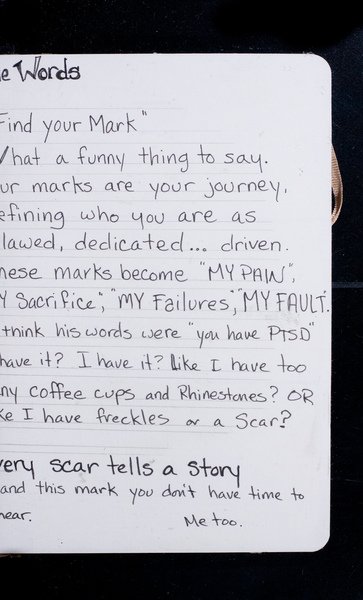 e Words
Find your Mark"
What a funny thing to say.
ur marks are your journey,
efining who you are as
lawed, dedicated... driven.
hese marks become "MY PAIN",
Y Sacrifice", "MY Failures", "MY FAULT.
think his words were "you have PTSD"
have it? I have it? Like I have too
ny coffee cups and Rhinestones? OR
ke I have freckles or a Scar?
very scar tells a Story
and this mark you don't have time to
hear.
Me too.